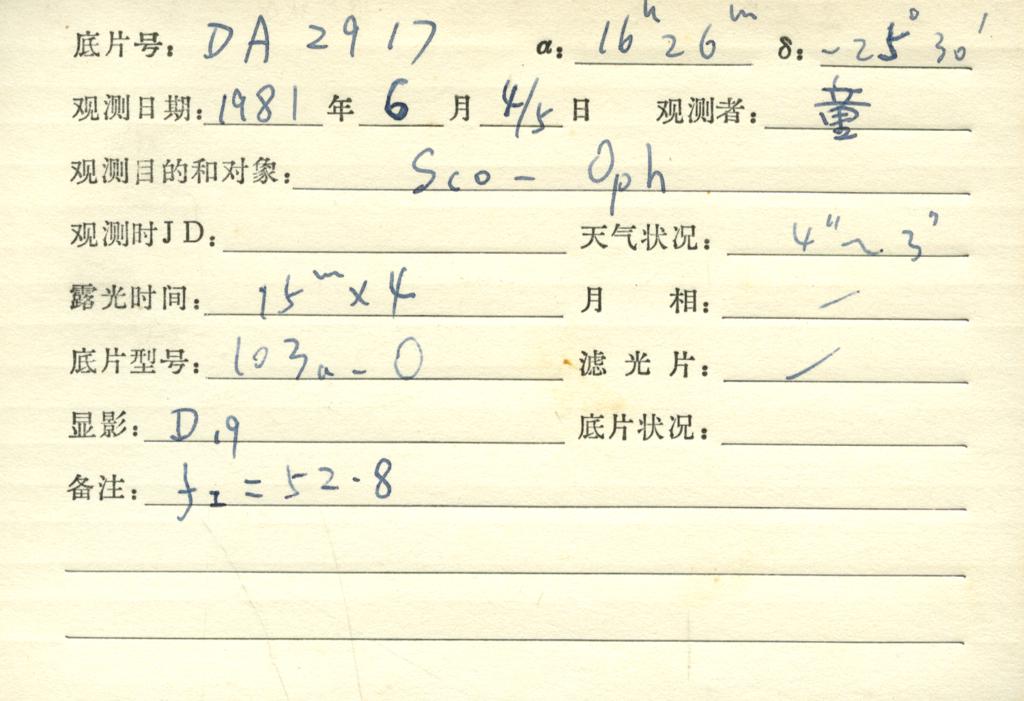 底片号: DA 2917 α: 16ʰ 26ᵐ δ: -25° 30′
观测日期: 1981 年 6 月 4/5 日 观测者: 童
观测目的和对象: Sco - Oph
观测时JD: 天气状况: 4" ~ 3"
露光时间: 15ᵐ × 4 月 相: /
底片型号: 103a-O 滤光片: /
显影: D19 底片状况:
备注: f_I = 52.8